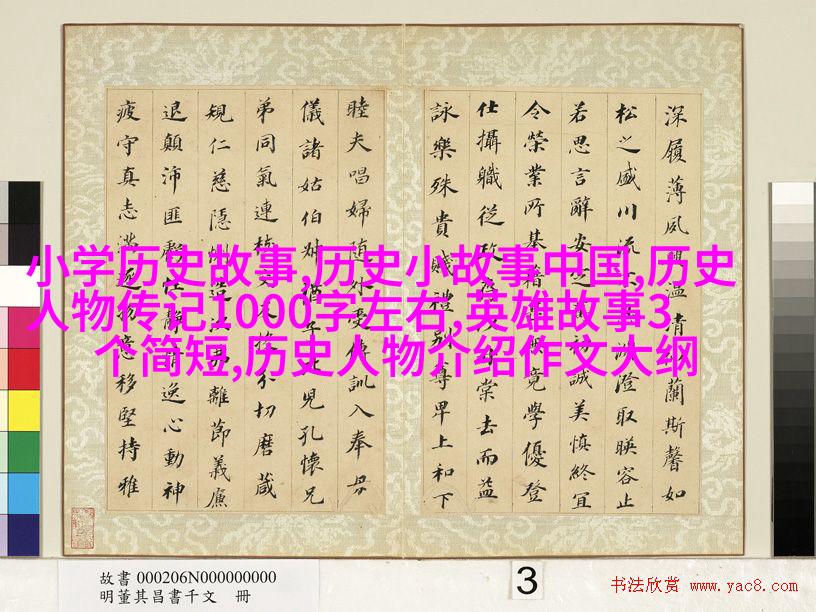 深履薄夙興温清似蘭斯馨如
松之盛川流不息淵澄取暎容止
若思言辭安定篤初誠美慎終宜
令榮業所基籍甚無竟學優登
仕攝職從政存以甘棠去而益
詠樂殊貴賤禮別尊卑上和下
睦夫唱婦隨外受傅訓入奉母
儀諸姑伯叔猶子比兒孔懷兄
弟同氣連枝交友投分切磨箴
規仁慈隱惻造次弗離節義廉
退顛沛匪虧性靜情逸心動神
疲守真志滿逐物意移堅持雅
小学历史故事,历史小故事中国,历史
人物传记1000字左右,英雄故事3
个简短,历史人物介绍作文大纲
故書 000206N000000000
明董其昌書千文 冊
3
书法欣赏 www.yac8.com